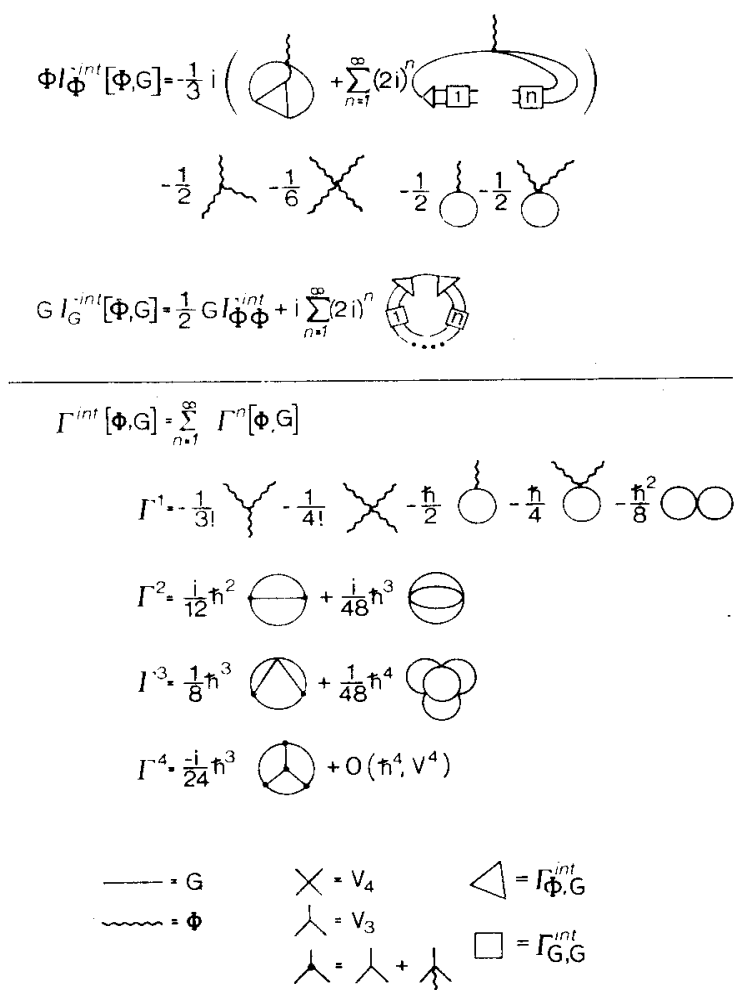 ΦΓ_Φ^int [Φ,G]=-1/3 i ( + Σ_{n=1}^∞ (2i)^n 1 n )
-1/2 -1/6 -1/2 -1/2
G Γ_G^int [Φ,G]=1/2 G Γ_ΦΦ^int + i Σ_{n=1}^∞ (2i)^n 1 n ....
Γ^int [Φ,G]=Σ_{n=1}^∞ Γ^n [Φ,G]
Γ^1=-1/3! -1/4! -ħ/2 -ħ/4 -ħ^2/8
Γ^2=i/12 ħ^2 + i/48 ħ^3
Γ^3=1/8 ħ^3 + 1/48 ħ^4
Γ^4=-i/24 ħ^3 + O(ħ^4, V^4)
= G = V_4 = Γ_Φ,G^int
= Φ = V_3 = Γ_G,G^int
= +